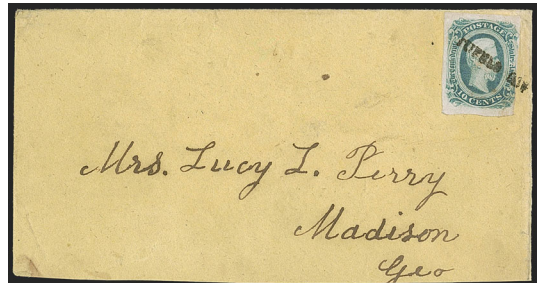 POSTAGE
10 CENTS
Mrs. Lucy L. Perry
Madison
Geo